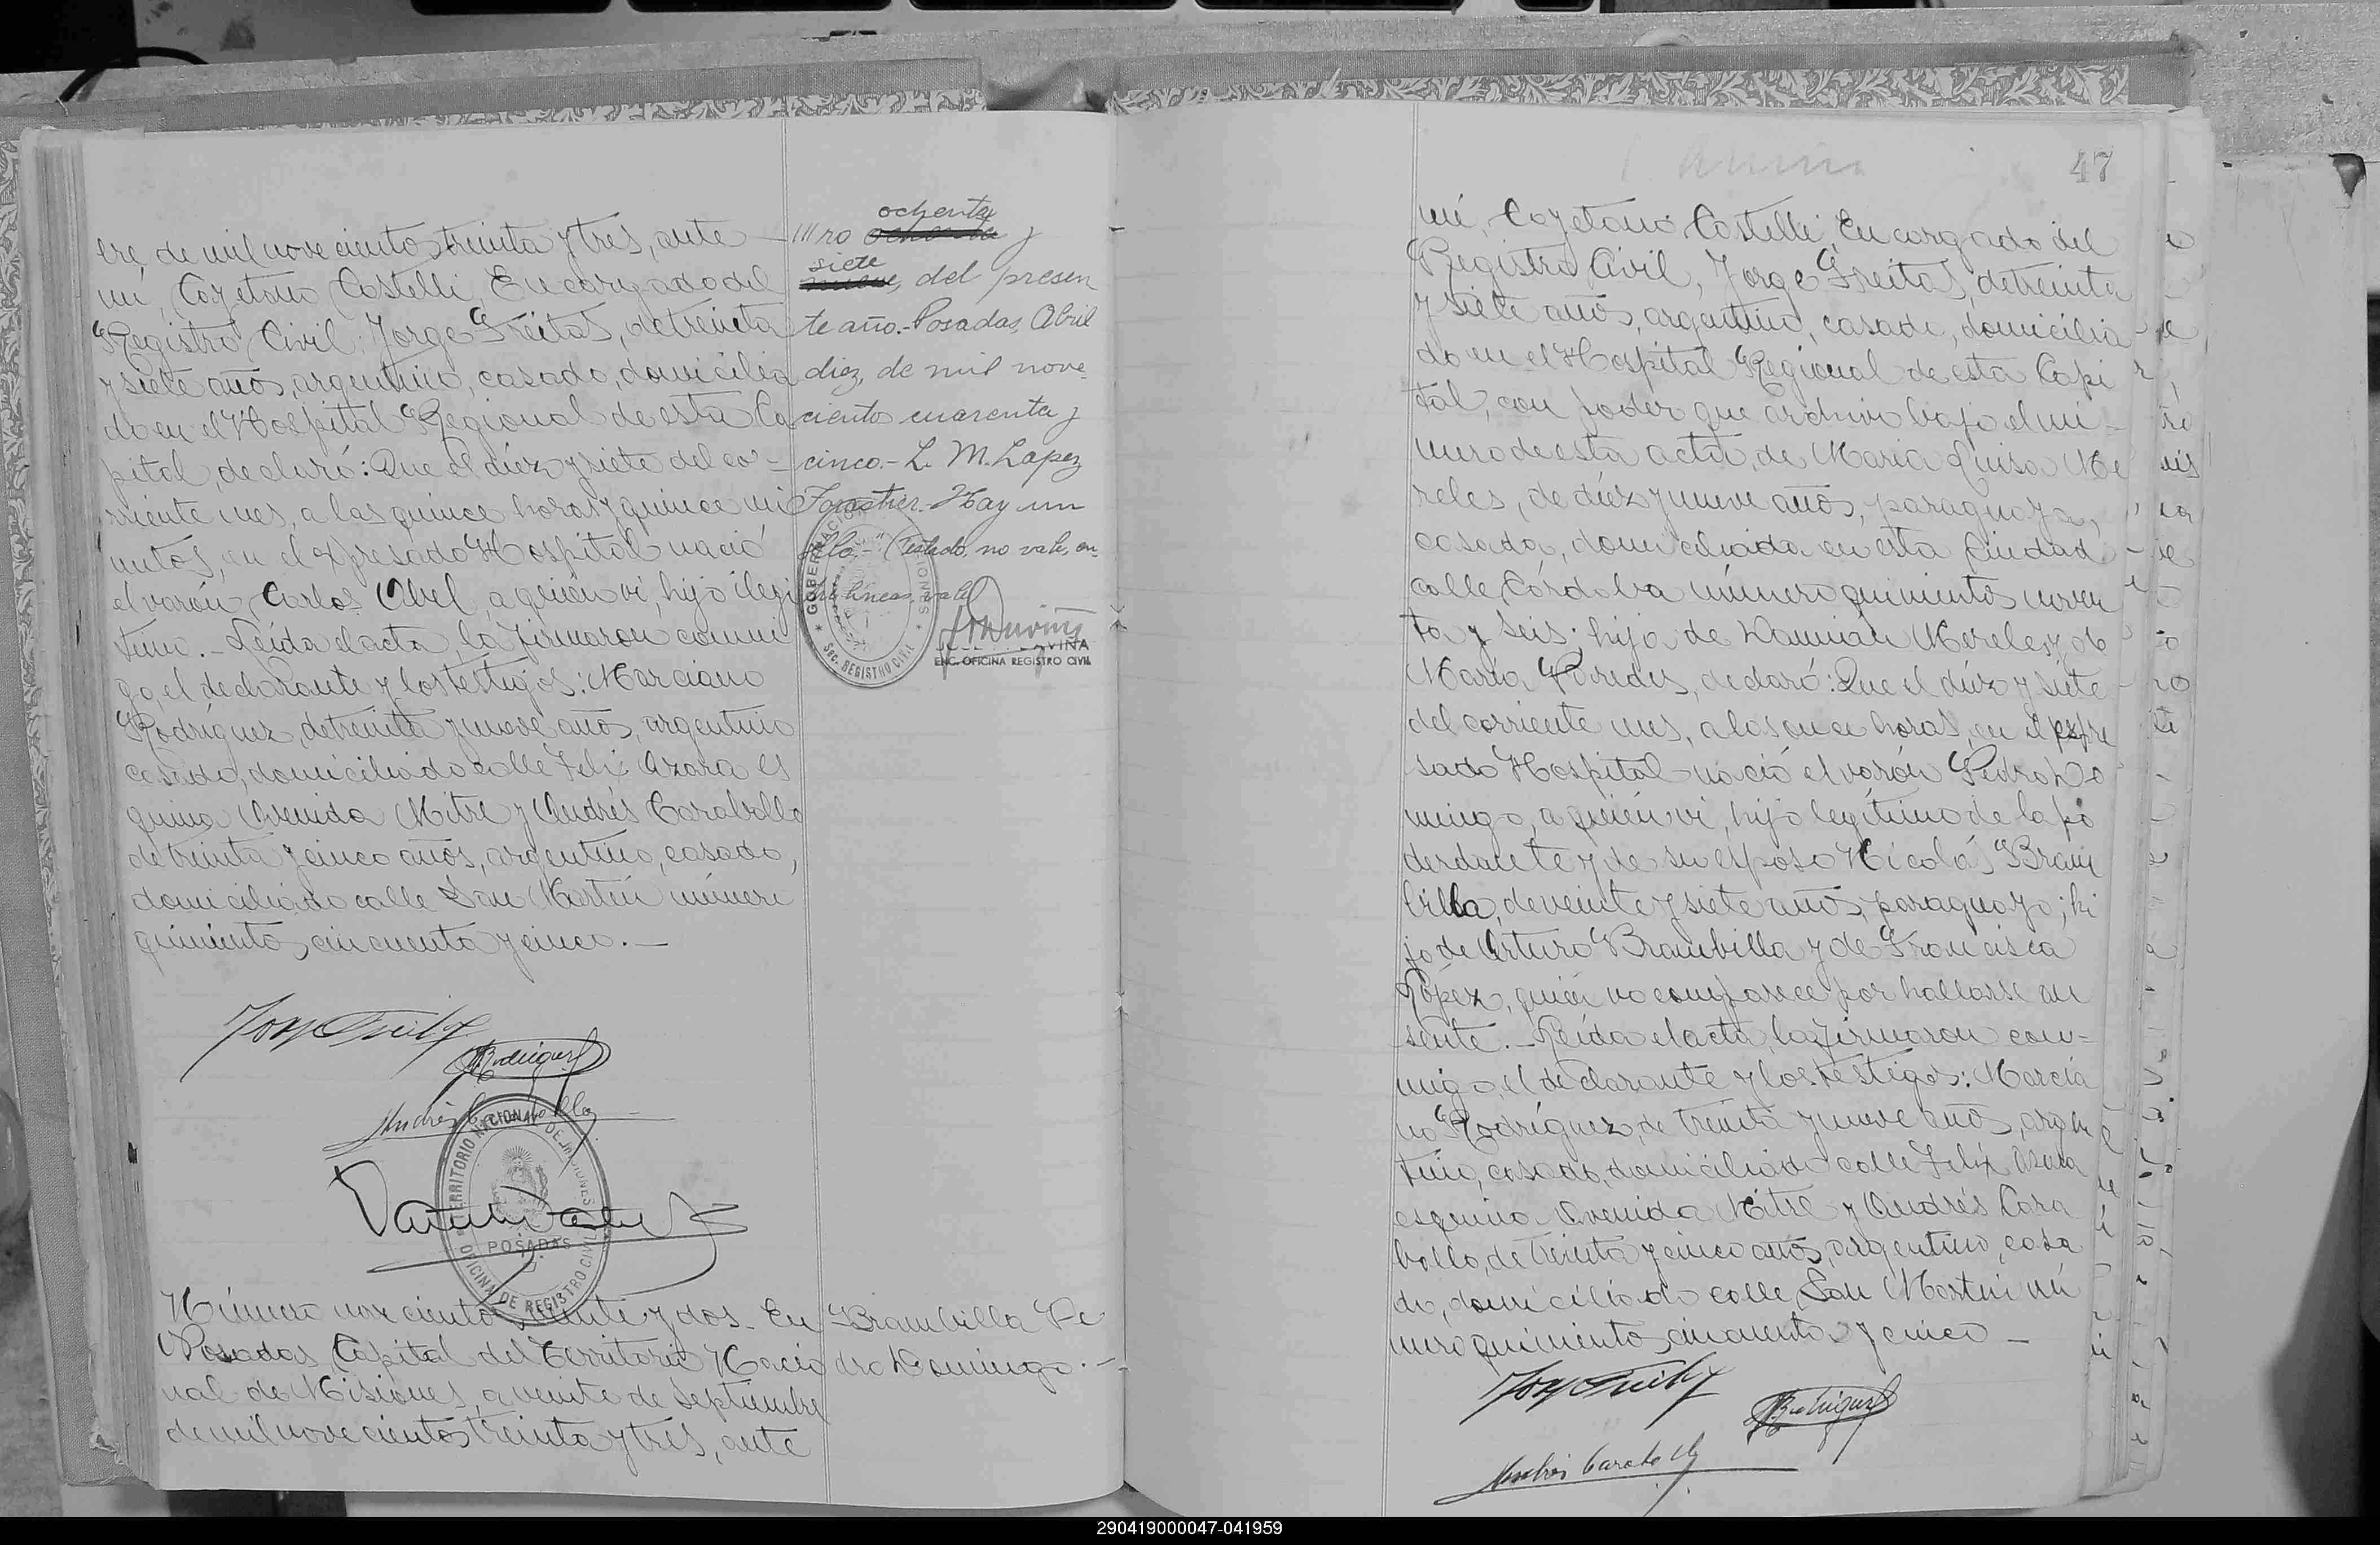 bre, de mil novecientos treinta y tres, ante
mí, Cayetano Castelli, Encargado del
Registro Civil; Jorge Freitas, de treinta
y siete años, argentino, casado, domicilia
do en el Hospital Regional de esta Ca
pital, declaró: Que el diez y siete del co-
rriente mes, a las quince horas y quince mi
nutos, en el expresado Hospital nació
el varón Carlos Abel, a quién ví, hijo ilegi
timo.- Leída el acta, la firmaron conmi
go, el declarante y los testigos: Marciano
Rodríguez, de treinta y nueve años, argentino
casado, domiciliado calle Felix Azara es
quina Avenida Mitre y Andrés Caraballo
de treinta y cinco años, argentino, casado,
domiciliado calle San Martín número
quinientos cincuenta y cinco.-
Rodriguez
Andrés Caraballo
TERRITORIO NACIONAL DE MISIONES
POSADAS
OFICINA DE REGISTRO CIVIL
Número novecientos veinte y dos. En
Posadas, Capital del Territorio Nacio
nal de Misiones, a veinte de Septiembre
de mil novecientos treinta y tres, ante
ochenta
///ro ochenta y
siete
nueve, del presen
te año.- Posadas, Abril
diez, de mil nove-
ciento cuarenta y
cinco.- L. M. Lopez
Forastier.- Hay un
sello.- (Testado, no vale, en-
tre lineas, vale)
GOBERNACION MISIONES
SEC. REGISTRO CIVIL
VIÑA
ENC. OFICINA REGISTRO CIVIL
Brambilla Pe
dro Domingo.-
47
mí, Cayetano Castelli, Encargado del
Registro Civil, Jorge Freitas, de treinta
y siete años, argentino, casado, domicilia
do en el Hospital Regional de esta Capi
tal, con poder que archivo bajo el nú-
mero de esta acta, de Maria Luisa Me
reles, de diez y nueve años, paraguaya,
casada, domiciliada en esta Ciudad
calle Córdoba número quinientos noven
ta y seis; hija de Damián Mereles y de
María Paredes, declaró: Que el diez y siete
del corriente mes, a las once horas, en el expre
sado Hospital nació el varón Pedro Do
mingo, a quién ví, hijo legítimo de la po
derdante y de su esposo Nicolás Bram
billa, de veinte y siete años, paraguayo; hi
jo de Arturo Brambilla y de Francisca
López, quién no comparece por hallarse au
sente.- Leída el acta, la firmaron con-
migo, el declarante y los testigos: Marcia
no Rodríguez, de treinta y nueve años, argen
tino, casado, domiciliado calle Felix Azara
esquina Avenida Mitre y Andrés Cara
ballo, de treinta y cinco años, argentino, casa
do, domiciliado calle San Martín nú
mero quinientos cincuenta y cinco -
Rodriguez
Andrés Caraballo
290419000047-041959